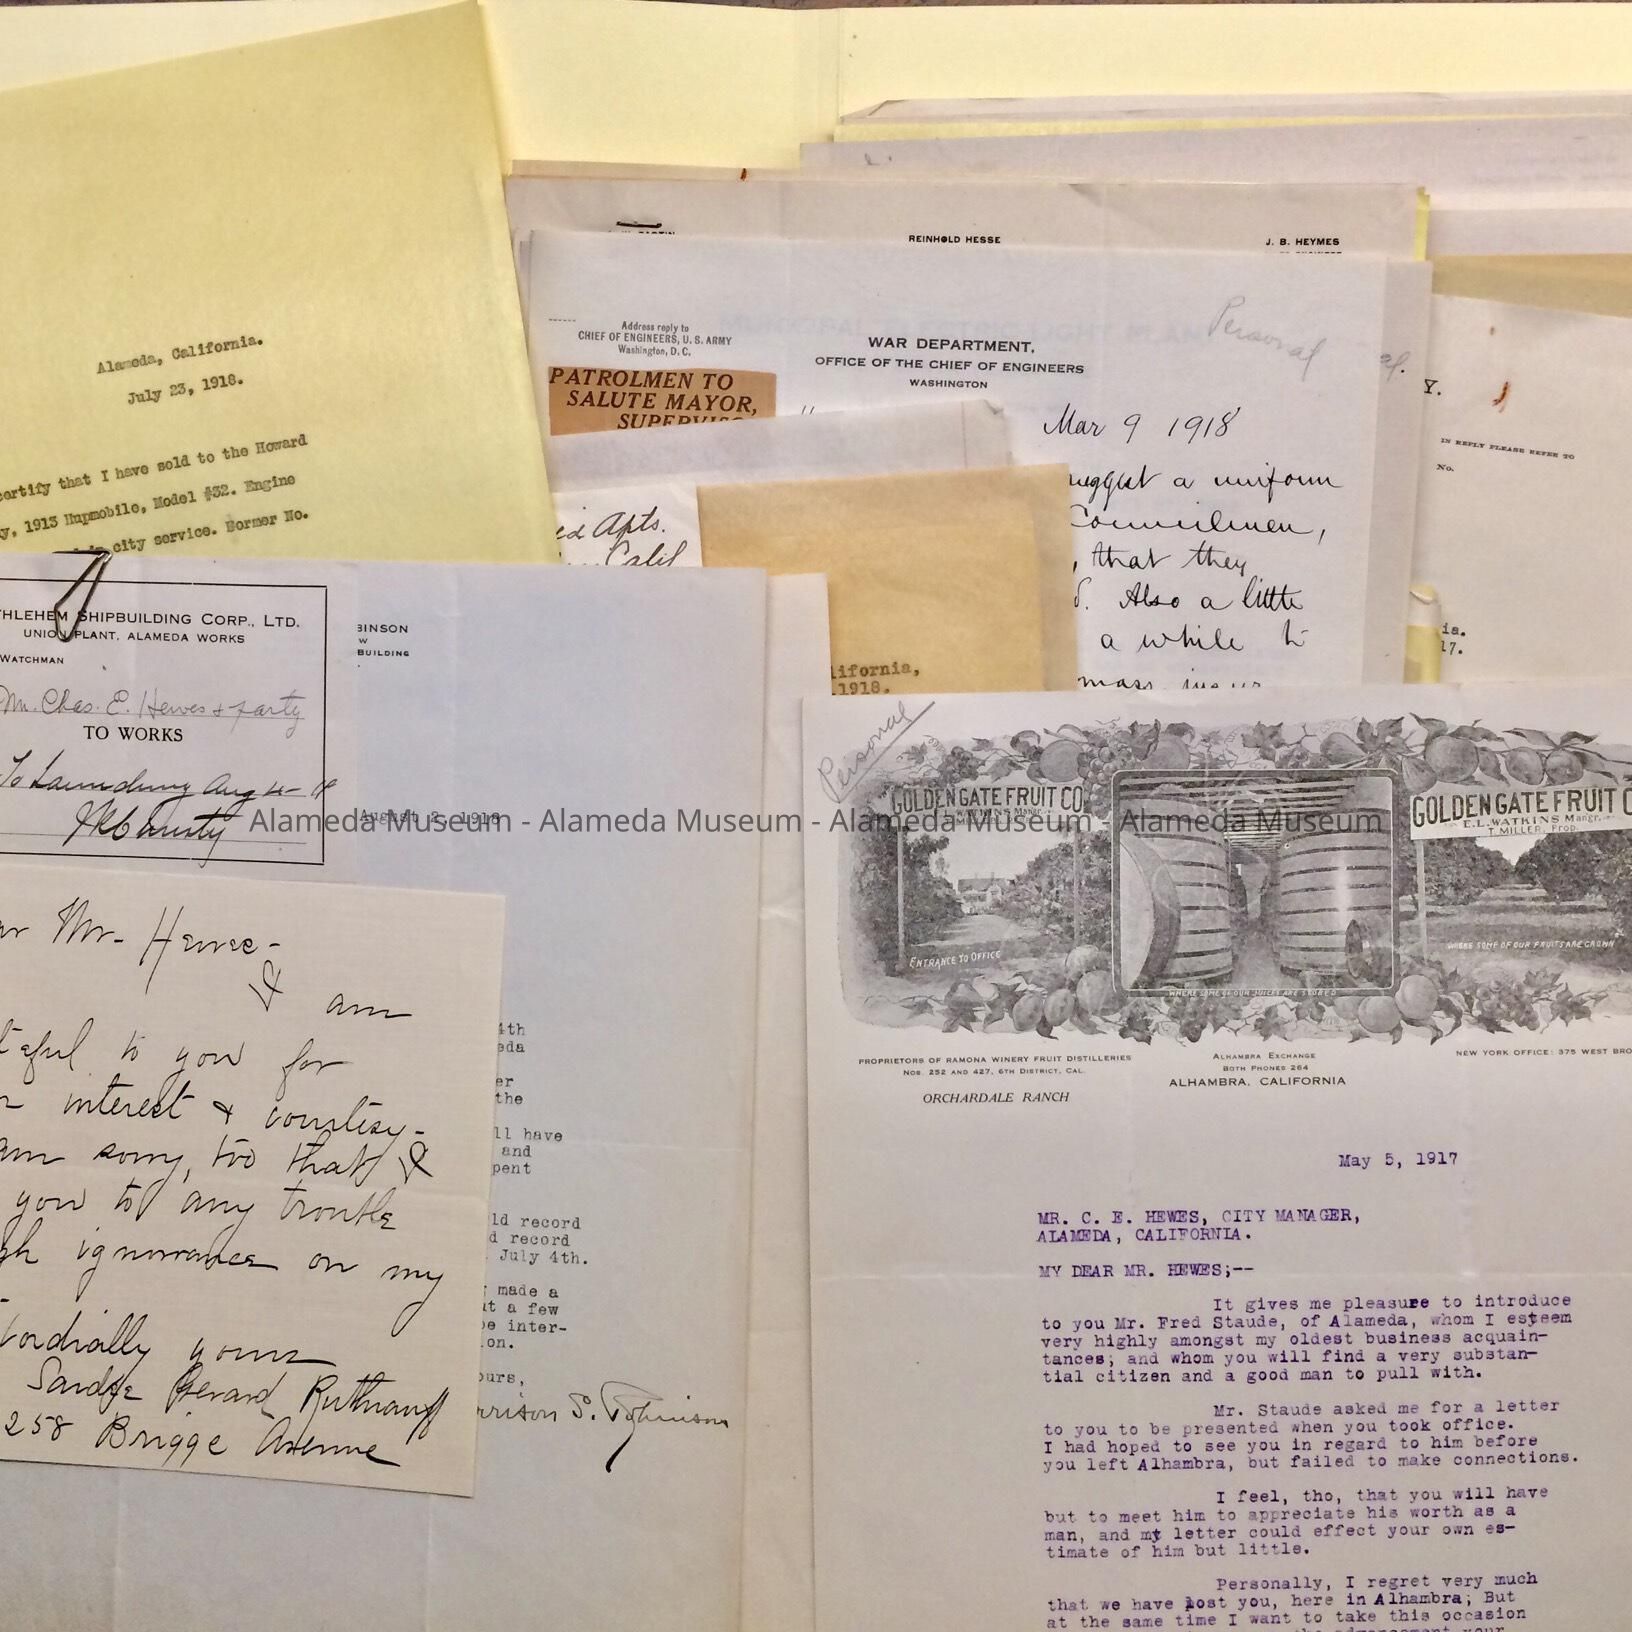 Alameda, California.
July 23, 1918.
certify that I have sold to the Howard
1913 Hupmobile, Model #32. Engine
city service. Bormer No.
REINHOLD HESSE
J. B. HEYMES
Address reply to
CHIEF OF ENGINEERS, U. S. ARMY
Washington, D. C.
WAR DEPARTMENT,
OFFICE OF THE CHIEF OF ENGINEERS
WASHINGTON
Personal
PATROLMEN TO
SALUTE MAYOR,
Mar 9 1918
suggest a uniform
Councilmen,
, that they
Also a little
a while
Apts.
Calif
lifornia,
1918.
Y.
IN REPLY PLEASE REFER TO
No.
ia.
17.
THLEHEM SHIPBUILDING CORP., LTD.
UNION PLANT, ALAMEDA WORKS
WATCHMAN
Mr. Chas. E. Hewes & party
TO WORKS
To Launching Aug 4-18
BINSON
W
BUILDING
August 2, 1918
Alameda Museum - Alameda Museum - Alameda Museum - Alameda Museum
Mr. Hewes -
I am
teful to you for
interest & courtesy -
am sorry, too that I
you to any trouble
gh ignorance on my
Cordially yours
258 Briggs Avenue
4th
eda
er
the
ll have
and
pent
ld record
d record
July 4th.
made a
ut a few
be inter-
on.
ours,
rrison S. Robinson
Personal
GOLDEN GATE FRUIT CO.
E.L. WATKINS Mangr.
T. MILLER, Prop.
GOLDEN GATE FRUIT C
E.L. WATKINS Mangr.
T. MILLER, Prop.
ENTRANCE TO OFFICE
WHERE SOME OF OUR JUICES ARE STORED
WHERE SOME OF OUR FRUITS ARE GROWN
PROPRIETORS OF RAMONA WINERY FRUIT DISTILLERIES
NOS. 252 AND 427, 6TH DISTRICT, CAL.
ORCHARDALE RANCH
ALHAMBRA EXCHANGE
BOTH PHONES 264
ALHAMBRA, CALIFORNIA
NEW YORK OFFICE: 375 WEST BRO
May 5, 1917
MR. C. E. HEWES, CITY MANAGER,
ALAMEDA, CALIFORNIA.
MY DEAR MR. HEWES;--
It gives me pleasure to introduce
to you Mr. Fred Staude, of Alameda, whom I esteem
very highly amongst my oldest business acquain-
tances; and whom you will find a very substan-
tial citizen and a good man to pull with.
Mr. Staude asked me for a letter
to you to be presented when you took office.
I had hoped to see you in regard to him before
you left Alhambra, but failed to make connections.
I feel, tho, that you will have
but to meet him to appreciate his worth as a
man, and my letter could effect your own es-
timate of him but little.
Personally, I regret very much
that we have lost you, here in Alhambra; But
at the same time I want to take this occasion